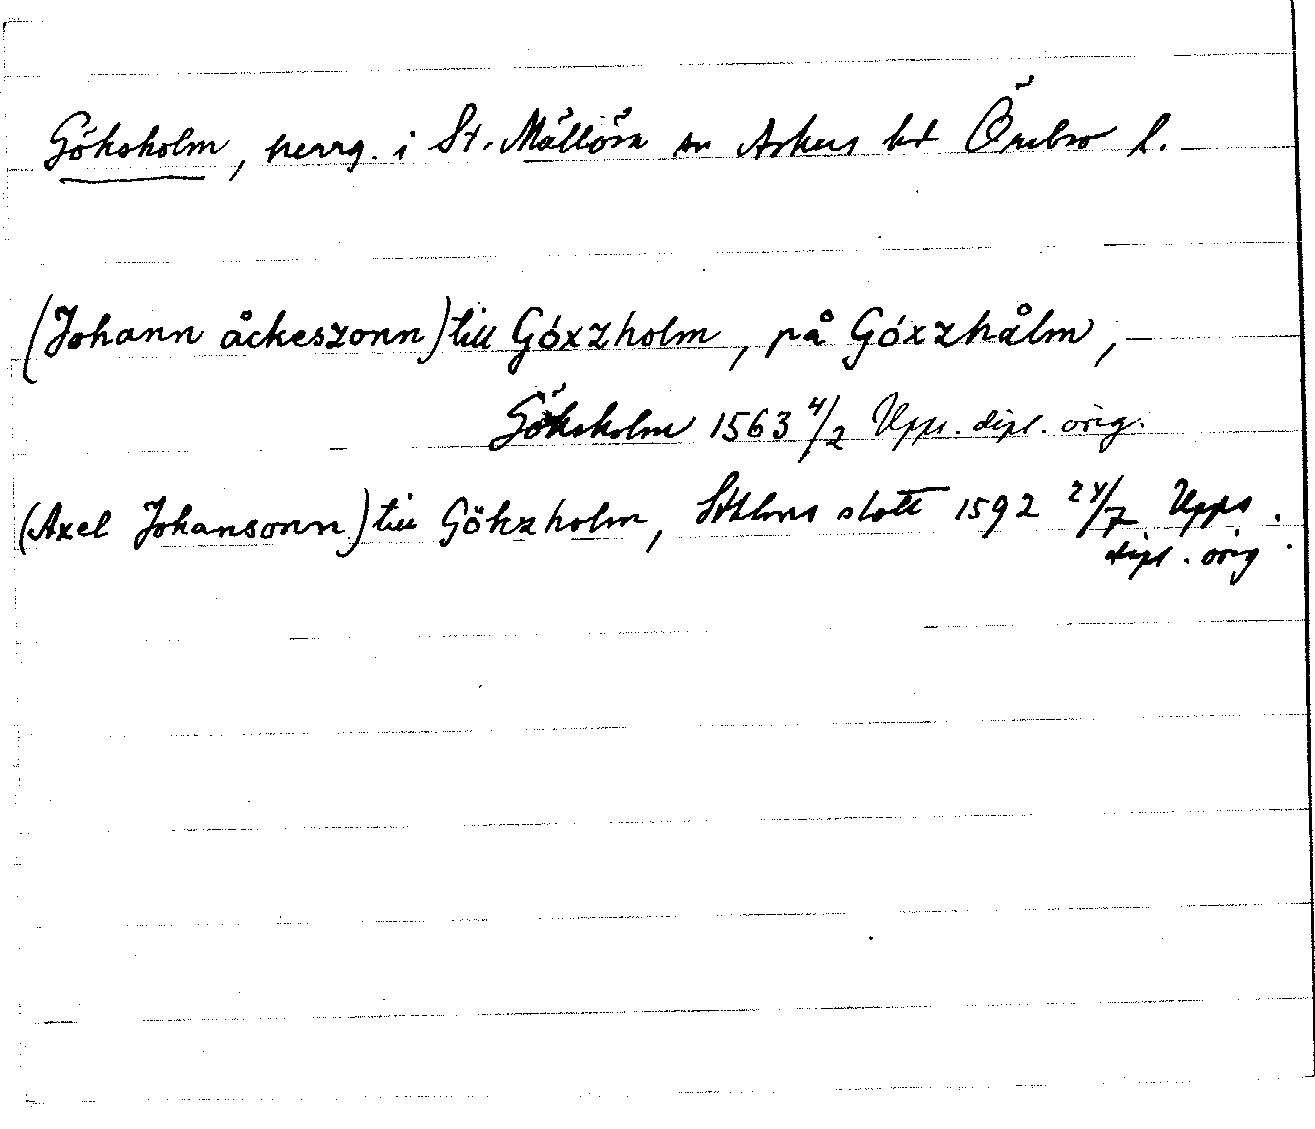 Göksholm, herrg. i St. Mellösa sn Askers hd Örebro l.
(Johann åckeszonn) till Góxzholm, på Góxzhålm,
Göksholm 1563 4/2 Upps. dipl. orig.
(Axel Johansonn) till Gökzholm, Sthlms slott 1592 24/7 Upps.
dipl. orig.